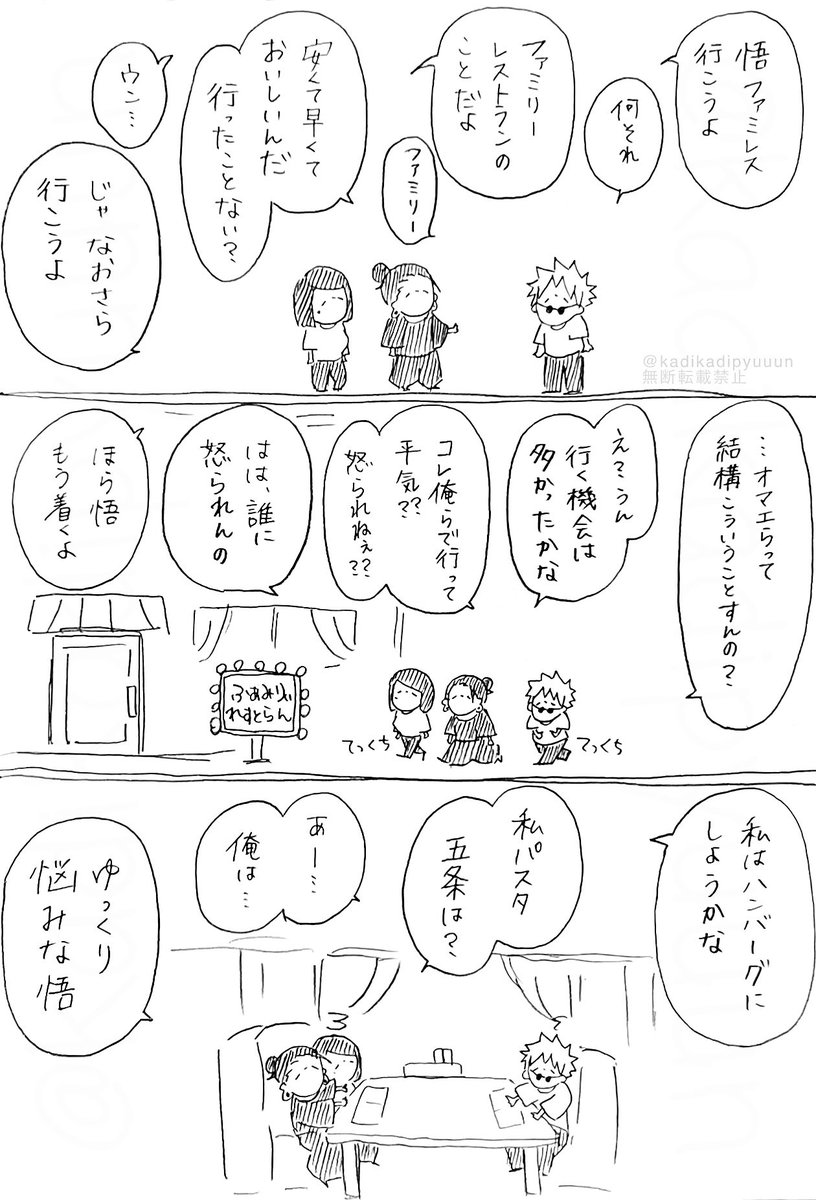 悟 ファミレス
行こうよ
何それ
ファミリー
レストランの
ことだよ
ファミリー
安くて早くて
おいしいんだ
行ったことない?
ウン…
じゃ なおさら
行こうよ
@kadikadipyuuun
無断転載禁止
…オマエらって
結構こういうことすんの?
え?うん
行く機会は
多かったかな
コレ俺らで行って
平気??
怒られねぇ??
はは、誰に
怒られんの
ほら悟
もう着くよ
ふぁみりぃ
れすとらん
てっくち
てっくち
私はハンバーグに
しようかな
私パスタ
五条は?
あー…
俺は…
ゆっくり
悩みな悟